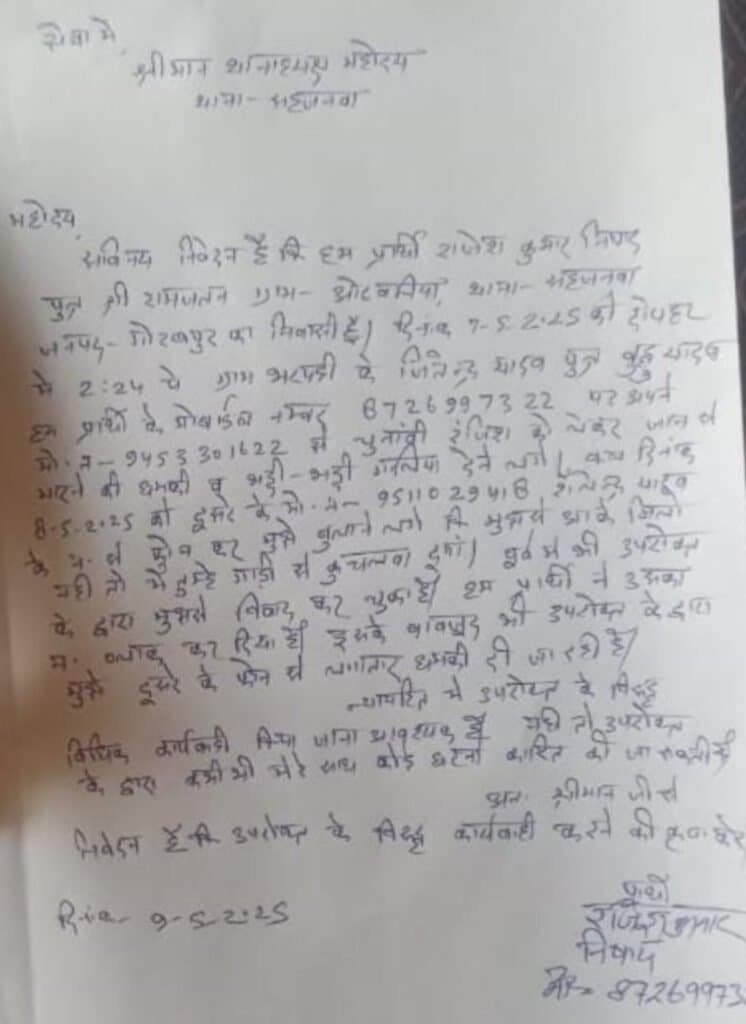 सेवा मे,
श्रीमान थानाध्यक्ष महोदय
थाना- सहजनवा
महोदय,
सविनय निवेदन है कि हम प्रार्थी राजेश कुमार निषाद
पुत्र श्री रामजतन ग्राम- थाना- सहजनवा
जनपद- गोरखपुर का निवासी है। दिनांक 7-5-2025 को दोपहर
मे 2:24 पे ग्राम के जितेन्द्र यादव पुत्र यादव
हम प्रार्थी के मोबाईल नम्बर 8726997322 पर अपने
मो. न- 9453301622 से चुनावी रंजिश को लेकर जान से
मारने की धमकी व भद्दी-भद्दी गालिया देने लगे। दिनांक
8-5-2025 को दूसरे के मो. न- 9511029418 यादव
के न. से फोन कर मुझे बुलाने लगे कि मुझसे आके मिलो
नही तो मै तुम्हे गाडी से कुचलवा दुंगा। पूर्व मे भी उपरोक्त
के द्वारा मुझसे विवाद कर चुका है। हम प्रार्थी ने उसका
न. ब्लाक कर दिया है। इसके बावजूद भी उपरोक्त के द्वारा
मुझे दूसरे के फोन से लगातार धमकी दी जा रही है।
न्यायहित मे उपरोक्त के विरुद्ध
विधिक कार्यवाही किया जाना आवश्यक है नही तो उपरोक्त
के द्वारा कभी भी मेरे साथ कोई घटना कारित की जा सकती है
अतः श्रीमान जी से
निवेदन है कि उपरोक्त के विरुद्ध कार्यवाही करने की कृपा करे
दिनांक- 9-5-2025
प्रार्थी
राजेश कुमार
निषाद
मो०- 87269973